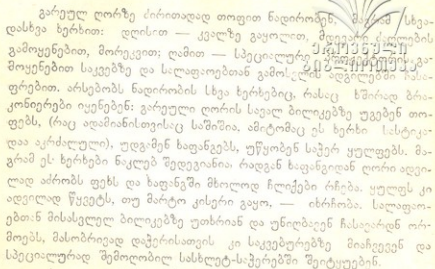 გარეულ ღორზე ძირითადად თოფით ნადირობენ, მაგრამ სხვა-
დასხვა ხერხით: დღისით — კვალზე გაყოლით, მდევარი ძაღლების
გამოყენებით, მორეკვით; ღამით — სპეციალური გა-
მოყენებით საკვებზე და სალაფაოებთან გამოსვლის ადგილებში ჩასა-
ფრებით. არსებობს ნადირობის სხვა ხერხებიც, რასაც ხშირად ბრა-
კონიერები იყენებენ: გარეული ღორის სავალ ბილიკებზე უგებენ თო-
ფებს, (რაც ადამიანისთვისაც საშიშია, ამიტომაც ეს ხერხი სასტიკა-
დაა აკრძალული), უდგამენ ხაფანგებს, უწყობენ საჭერ ყულფებს. მა-
გრამ ეს ხერხები ნაკლებ შედეგიანია, რადგან ხაფანგიდან ღორი ადვი-
ლად აძრობს ფეხს და ხაფანგში მხოლოდ ჩლიქები რჩება. ყულფს კი
ადვილად წყვეტს, თუ მარტო კისერი გაყო, — იხრჩობა. სალაფაო-
ებთან მისასვლელ ბილიკებზე უთხრიან და უნიღბავენ ჩასავარდნ ორ-
მოებს, მასობრივად დაჭერისათვის კი საკვებურებზე მიაჩვევენ და
სპეციალურად შემოღობილ სასხლეტ-საჭერებში შეიტყუებენ.